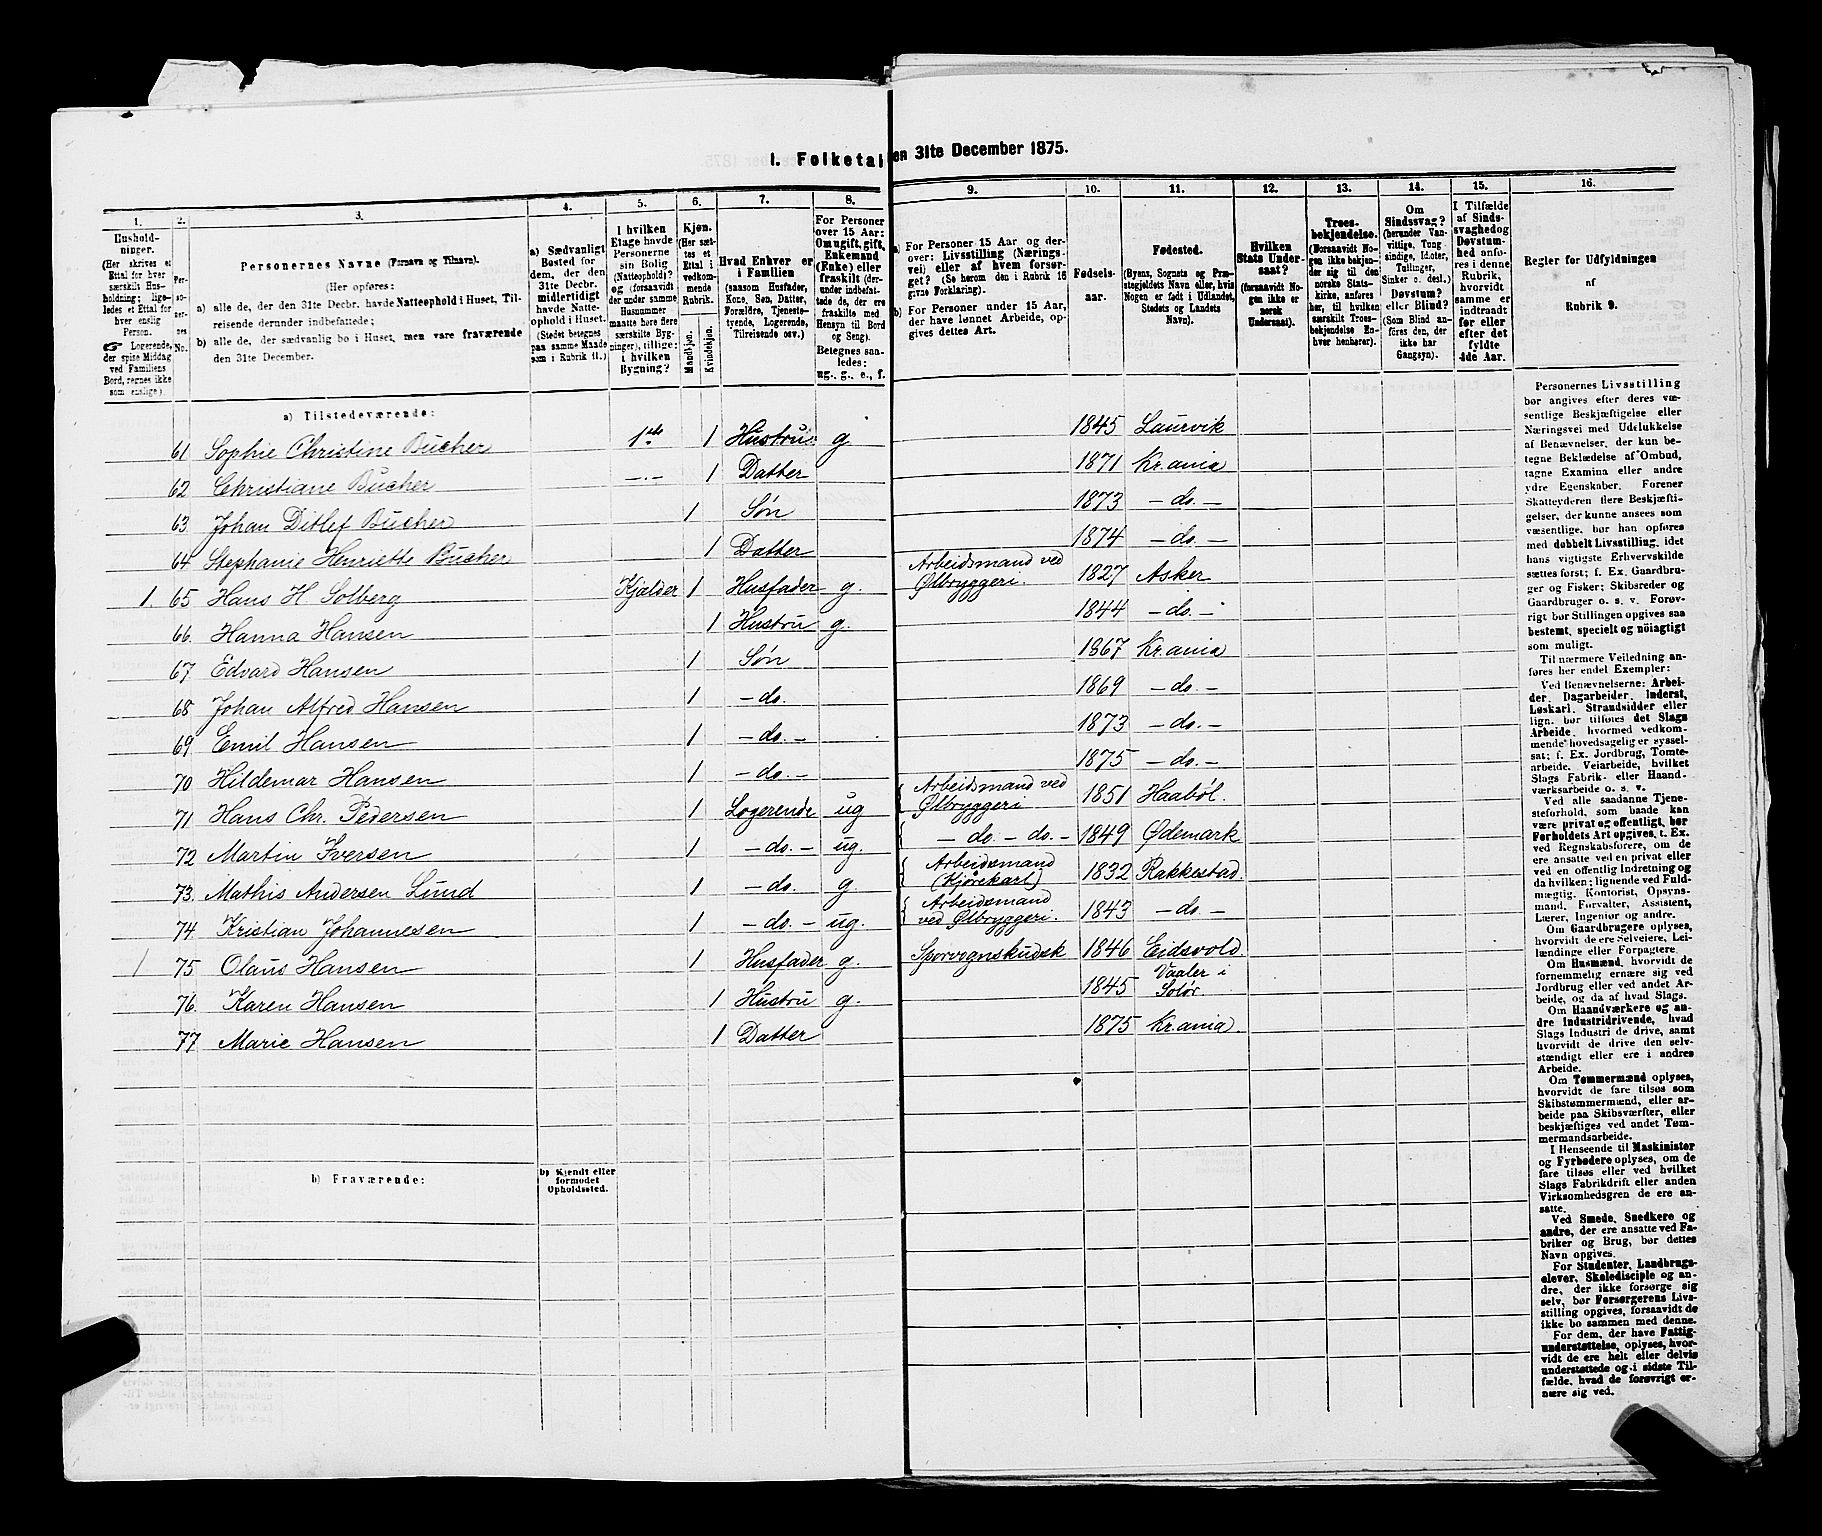 I. Folketal den 31te December 1875.
1. 2. 3. 4. 5. 6. 7. 8. 9. 10. 11. 12. 13. 14. 15. 16.
Husholdninger.
(Her skrives et Ettal for hver særskilt Husholdning; ligeledes et Ettal for hver enslig Person.
☞ Logerende, der spise Middag ved Familiens Bord, regnes ikke som enslige).
Personernes No.
Personernes Navne (Fornavn og Tilnavn).
(Her opføres:
a) alle de, der den 31te Decbr. havde Natteophold i Huset, Tilreisende derunder indbefattede;
b) alle de, der sædvanlig bo i Huset, men vare fraværende den 31te December.
a) Sædvanligt Bosted for dem, der den 31te Decbr. midlertidigt havde Natteophold i Huset. (Stedet betegnes paa samme Maade som i Rubrik 11.)
I hvilken Etage havde Personerne sin Bolig (Natteophold)? og (forsaavidt der under samme Husnummer maatte høre flere særskilte Bygninger), tillige: i hvilken Bygning?
Kjøn. (Her sættes et Ettal i vedkommende Rubrik.
Mandkjøn. Kvindekjøn.
Hvad Enhver er i Familien
(saasom Husfader, Kone, Søn, Datter, Forældre, Tjenestetyende, Logerende, Tilreisende osv.)
For Personer over 15 Aar: Om ugift, gift, Enkemand (Enke) eller fraskilt (derunder indbefattede de, der ere fraskilte med Hensyn til Bord og Seng)
Betegnes saaledes: ug., g., e., f.
a) For Personer 15 Aar og derover: Livsstilling (Næringsvei) eller af hvem forsørget? (Se herom den i Rubrik 16 givne Forklaring).
b) For Personer under 15 Aar, der have lønnet Arbeide, opgives dettes Art.
Fødselsaar.
Fødested.
(Byens, Sognets og Præstegjeldets Navn eller, hvis Nogen er født i Udlandet, Stedets og Landets Navn).
Hvilken Stats Undersaat?
(forsaavidt Nogen ikke er norsk Undersaat).
Troesbekjendelse.
(Forsaavidt Nogen ikke bekjender sig til den norske Statskirke, anføres her, til hvilken særskilt Troesbekjendelse Enhver henhører).
Om Sindssvag? (herunder Vanvittige, Tungsindige, Idioter, Tullinger, Sinker o. desl.) Døvstum? eller Blind? (Som Blind anføres den, der ikke har Gangsyn).
I Tilfælde af Sindssvaghed og Døvstumhed anføres i denne Rubrik, hvorvidt samme er indtraadt før eller efter det fyldte 4de Aar.
Regler for Udfyldningen af Rubrik 9.
a) Tilstedeværende:
61 Sophie Christine Bucher 1ste 1 Hustru g 1845 Laurvik
62 Christiane Bucher —.— 1 Datter 1871 Kr.ania
63 Johan Ditlef Bucher 1 Søn 1873 — do. —
64 Stephanie Henriette Bucher 1 Datter 1874 — do. —
1. 65 Hans H Solberg Kjælder 1 Husfader g. Arbeidsmand ved Ølbryggeri. 1827 Asker
66. Hanna Hansen 1 Hustru g. 1844 — do. —
67 Edvard Hansen 1 Søn 1867 Kr.ania
68 Johan Alfred Hansen 1 — do. 1869 — do. —
69 Emil Hansen 1 — do. — 1873 — do. —
70 Hildemar Hansen 1 — do. — 1875 — do. —
71 Hans Chr. Pedersen 1 Logerende ug Arbeidsmand ved Ølbryggeri 1851 Haabøl.
72 Martin Iversen 1 — do. — ug. — do. — do. — 1849 Ødemark
73. Mathis Andersen Lund 1 — do. g Arbeidsmand (Kjørekarl) 1832 Rakkestad
74 Kristian Johannesen 1 — do. — ug. Arbeidsmand ved Ølbryggeri. 1843 — do. —
1 75 Olaus Hansen 1 Husfader g. Sporvognskudsk 1846 Eidsvold.
76. Karen Hansen 1 Hustru g. 1845 Vaaler i Solør.
77 Marie Hansen 1 Datter 1875 Kr.ania.
b) Fraværende:
b) Kjendt eller formodet Opholdssted.
Personernes Livsstilling
bør angives efter deres væ-
sentlige Beskjæftigelse eller
Næringsvei med Udelukkelse
af Benævnelser, der kun be-
tegne Beklædelse af Ombud,
tagne Examina eller andre
ydre Egenskaber. Forener
Skatteyderen flere Beskjæfti-
gelser, der kunne ansees som
væsentlige, bør han opføres
med dobbelt Livsstilling, idet
hans vigtigste Erhvervskilde
sættes først; f. Ex. Gaardbru-
ger og Fisker; Skibsreder og
Gaardbruger o. s. v. Forøv-
rigt bør Stillingen opgives saa
bestemt, specielt og nöiagtigt
som muligt.
Til nærmere Veiledning an-
føres her endel Exempler:
Ved Benævnelserne: Arbei-
der, Dagarbeider, Inderst,
Løskarl, Strandsidder eller
lign. bør tilføies det Slags
Arbeide, hvormed vedkom-
mende hovedsagelig er syssel-
sat; f. Ex. Jordbrug, Tomte-
arbeide, Veiarbeide, hvilket
Slags Fabrik- eller Haand-
værksarbeide o. s. v.
Ved alle saadanne Tjene-
steforhold, som baade kan
være privat og offentligt, bør
Forholdets Art opgives, t. Ex.
ved Regnskabsførere, om de
ere ansatte ved en privat eller
ved en offentlig Indretning og
da hvilken; lignende ved Fuld-
mægtig, Kontorist, Opsyns-
mand, Forvalter, Assistent,
Lærer, Ingeniør og andre.
Om Gaardbrugere oplyses,
hvorvidt de ere Selveiere, Lei-
lændinge eller Forpagtere.
Om Husmænd, hvorvidt de
fornemmelig ernære sig ved
Jordbrug eller ved andet Ar-
beide, og da af hvad Slags.
Om Haandværkere og an-
dre Industridrivende, hvad
Slags Industri de drive, samt
hvorvidt de drive den selv-
stændigt eller ere i andres
Arbeide.
Om Tømmermænd oplyses,
hvorvidt de fare tilsøs som
Skibstømmermænd, eller ar-
beide paa Skibsværfter, eller
beskjæftiges ved andet Tøm-
mermandsarbeide.
I Henseende til Maskinister
og Fyrbødere oplyses, om de
fare tilsøs eller ved hvilket
Slags Fabrikdrift eller anden
Virksomhedsgren de ere an-
satte.
Ved Smede, Snedkere og
andre, der ere ansatte ved Fa-
briker og Brug, bør dettes
Navn opgives.
For Studenter, Landbrugs-
elever, Skoledisciple og an-
dre, der ikke forsørge sig
selv, bør Forsørgerens Livs-
stilling opgives, forsaavidt de
ikke bo sammen med denne.
For dem, der have Fattig-
understøttelse, oplyses, hvor-
vidt de ere helt eller delvis
understøttede og i sidste Til-
fælde, hvad de forøvrigt er-
nære sig ved.